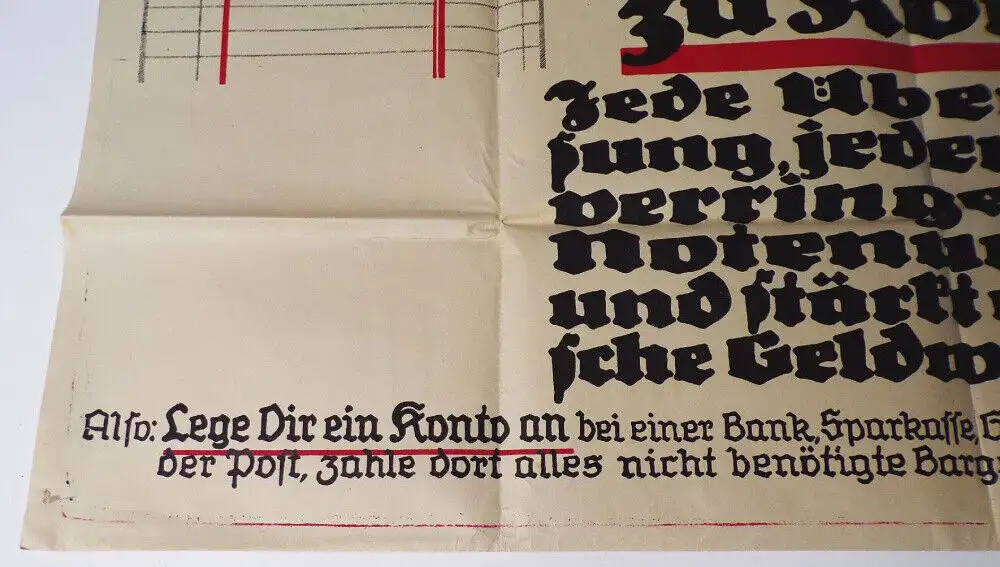 zu Kon
Jede Übe
sung, jede
verringe
Notenu
und stärkt
sche Geldw
Also: Lege Dir ein Konto an bei einer Bank, Sparkasse, G
der Post, zahle dort alles nicht benötigte Barg